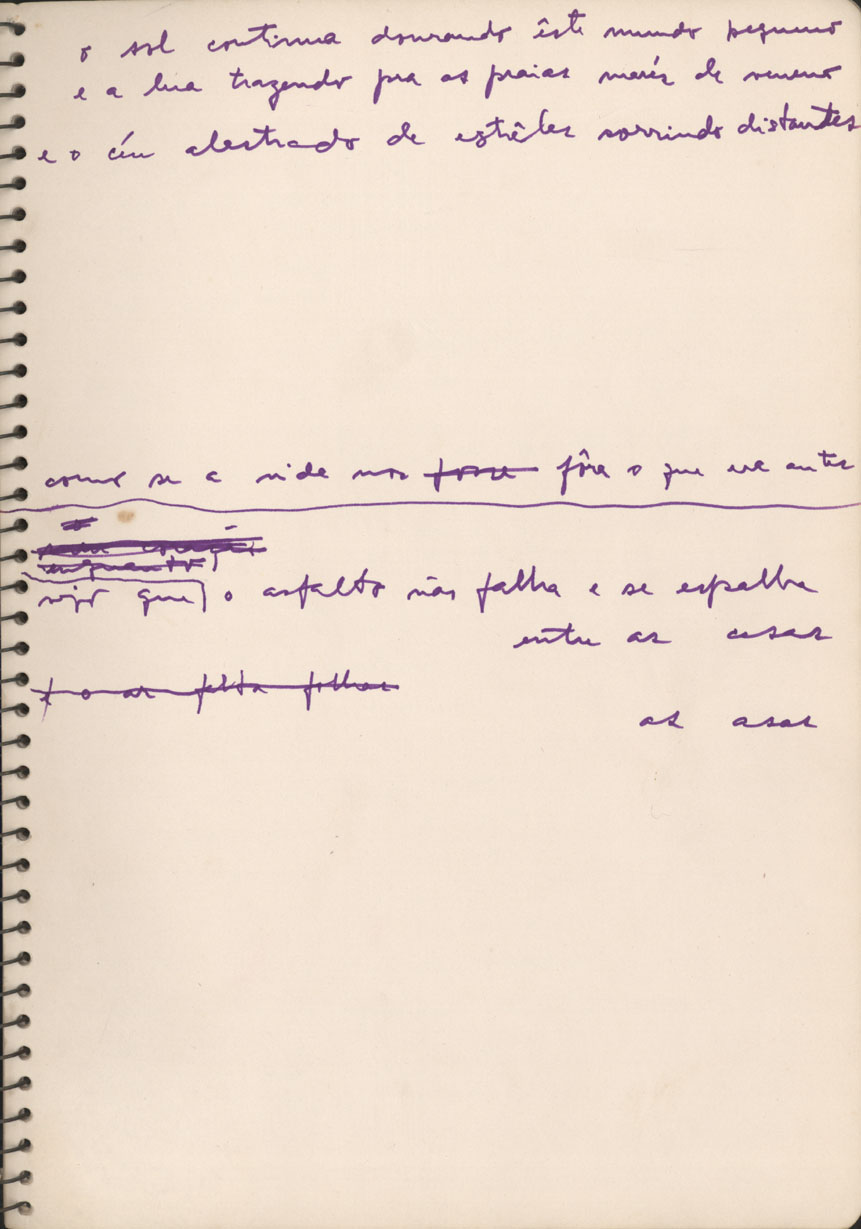 o sol continua dourando êste mundo pequeno
e a lua trazendo pra as praias marés de veneno
e o céu alastrado de estrêlas sorrindo distantes
como se a vida não fosse fôra o que era antes
enquanto
vejo que o asfalto não falha e se espalha
entre as casas
e o ar falta folhas
as asas